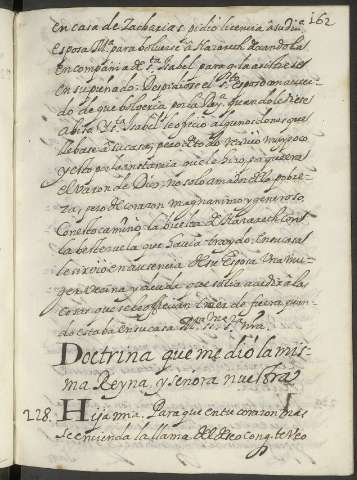 162
en casa de Zacharias pidio licencia a su diu.ª
esposa M.ª para boluerse a Nazareth dexandola
en compañia de S.ta Isabel para q̃ la asistiese
en su preñado. Despidiose el S.to esposo
do de que bolberia por la Rey.ª quando le diese
abiso. Y S.ta Isabel le ofrecio algunos dones que
llebase a su casa; pero de todo reciuio muy poco
y esto por la instancia que le hizo, porque era
el Varon de Dios no solo amador de la pobre-
za, pero de coraçon magnanimo y generoso.
Con esto camino la buelta de Nazareth con
la bestezuela que hauia traydo. En su casa
le siruio en ausencia de su esposa una mu-
ger vecina y deuda que solia acudir a la
cosas que se le ofrecian traer de fuera quan-
do estaba en su casa M.ª SS.ma S.ra nra.
Doctrina que me dio la mis-
ma Reyna, y señora nuestra
228. Hija mia. Para que en tu coraçon mas
se encienda la llama del deseo con q̃ te veo